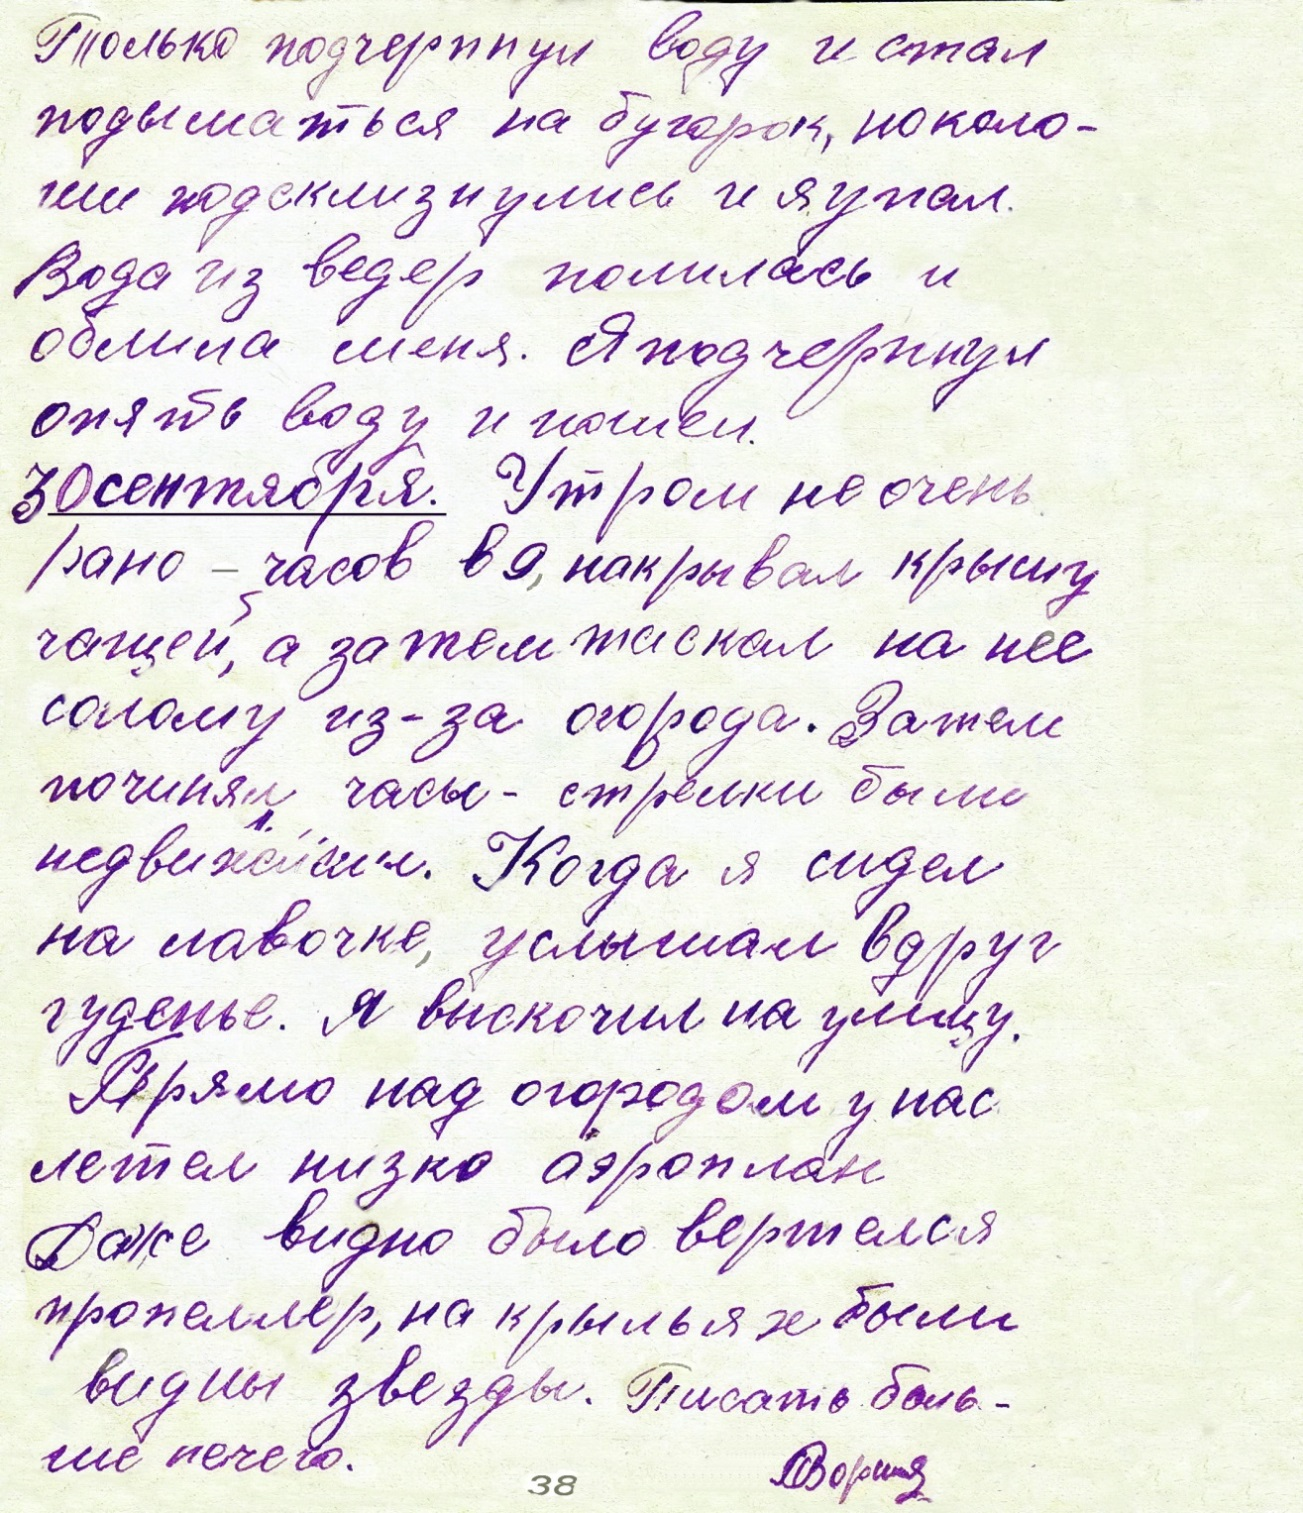 Только подчерпнул воду и стал
подыматься на бугорок, но коло-
ши подсклизнулись и я упал.
Вода из ведер полилась и
облила меня. Я подчерпнул
опять воду и пошел.
30 сентября. Утром не очень
рано – часов в 9, накрывал крышу
чащей, а затем таскал на нее
солому из-за огорода. Затем
починял часы - стрелки были
недвижимы. Когда я сидел
на лавочке, услышал вдруг
гуденье. Я выскочил на улицу.
Прямо над огородом у нас
летел низко аэроплан
Даже видно было вертелся
пропеллер, на крыльях были
видны звезды. Писать боль-
ше нечего.
38